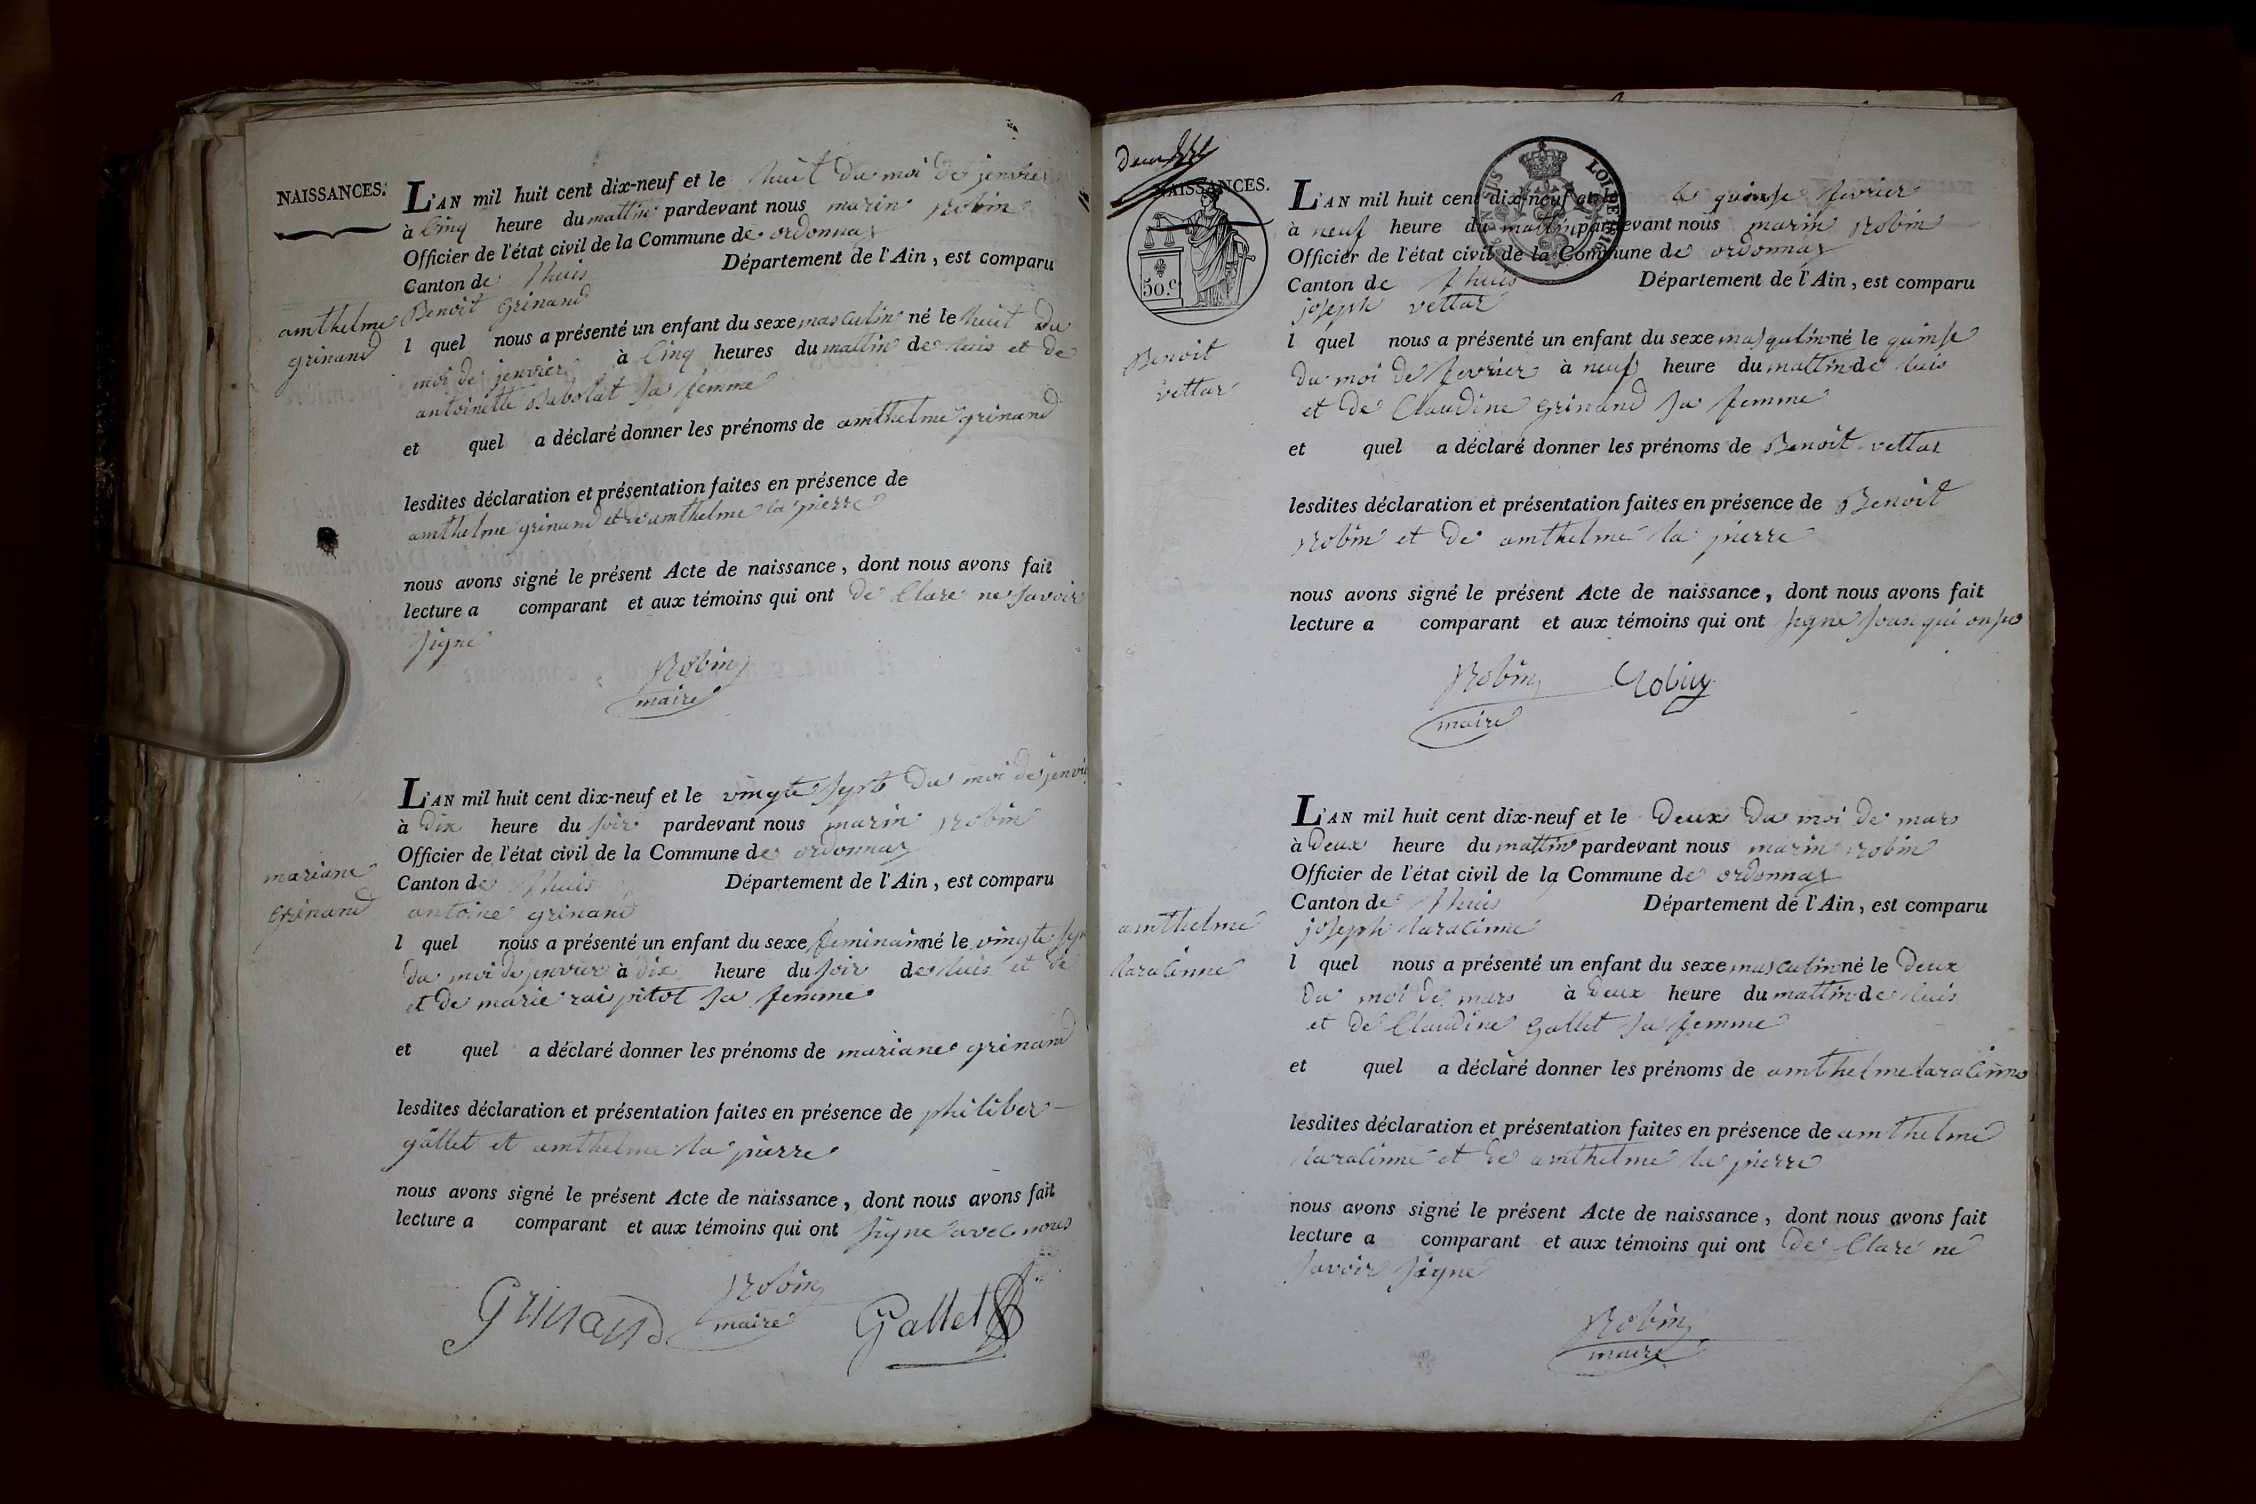 NAISSANCES.
L'AN mil huit cent dix-neuf et le huit du moi de jenvier
à Cinq heure du mattin pardevant nous marin Robin
Officier de l'état civil de la Commune de ordonnaz
Canton de lhuis Département de l'Ain, est comparu
Benoit grinand
amthelme
grinand
l quel nous a présenté un enfant du sexe masculin né le huit du
moi de jenvier à Cinq heures du mattin de luis et de
antoinette Babolat sa femme
et quel a déclaré donner les prénoms de amthelme grinand
lesdites déclaration et présentation faites en présence de
amthelme grinand et de amthelme la pierre
nous avons signé le présent Acte de naissance, dont nous avons fait
lecture a comparant et aux témoins qui ont de Clare ne savoir
signe
Robin
maire
L'AN mil huit cent dix-neuf et le vingte sept du moi de jenvie
à dix heure du soir pardevant nous marin Robin
Officier de l'état civil de la Commune de ordonnaz
mariane
grinand
Canton de lhuis Département de l'Ain, est comparu
antoine grinand
l quel nous a présenté un enfant du sexe feminain né le vingte
du moi de jenvier à dix heure du soir de luis et de
et de marie rai pitot sa femme
et quel a déclaré donner les prénoms de mariane grinand
lesdites déclaration et présentation faites en présence de philiber
gallet et amthelme la pierre
nous avons signé le présent Acte de naissance, dont nous avons fait
lecture a comparant et aux témoins qui ont signe avec nous
Grinand Robin Gallet
maire
NAISSANCES.
50 c
LOI DE 1816
L'AN mil huit cent dix-neuf et le le quinse fevrier
à neuf heure du mattin pardevant nous marin Robin
Officier de l'état civil de la Commune de ordonnaz
Canton de lhuis Département de l'Ain, est comparu
joseph vettar
Benoit
vettar
l quel nous a présenté un enfant du sexe masqulin né le quinse
du moi de fevrier à neuf heure du mattin de luis
et de Claudine grinand sa femme
et quel a déclaré donner les prénoms de Benoit vettar
lesdites déclaration et présentation faites en présence de Benoit
Robin et de amthelme la pierre
nous avons signé le présent Acte de naissance, dont nous avons fait
lecture a comparant et aux témoins qui ont signe
Robin Robin
maire
L'AN mil huit cent dix-neuf et le Deux du moi de mars
à Deux heure du mattin pardevant nous marin Robin
Officier de l'état civil de la Commune de ordonnaz
Canton de lhuis Département de l'Ain, est comparu
joseph laracinne
amthelme
laracinne
l quel nous a présenté un enfant du sexe masculin né le Deux
du moi de mars à Deux heure du mattin de luis
et de Claudine gallet sa femme
et quel a déclaré donner les prénoms de amthelme laracinne
lesdites déclaration et présentation faites en présence de amthelme
laracinne et de amthelme la pierre
nous avons signé le présent Acte de naissance, dont nous avons fait
lecture a comparant et aux témoins qui ont de Clare ne
savoir signe
Robin
maire